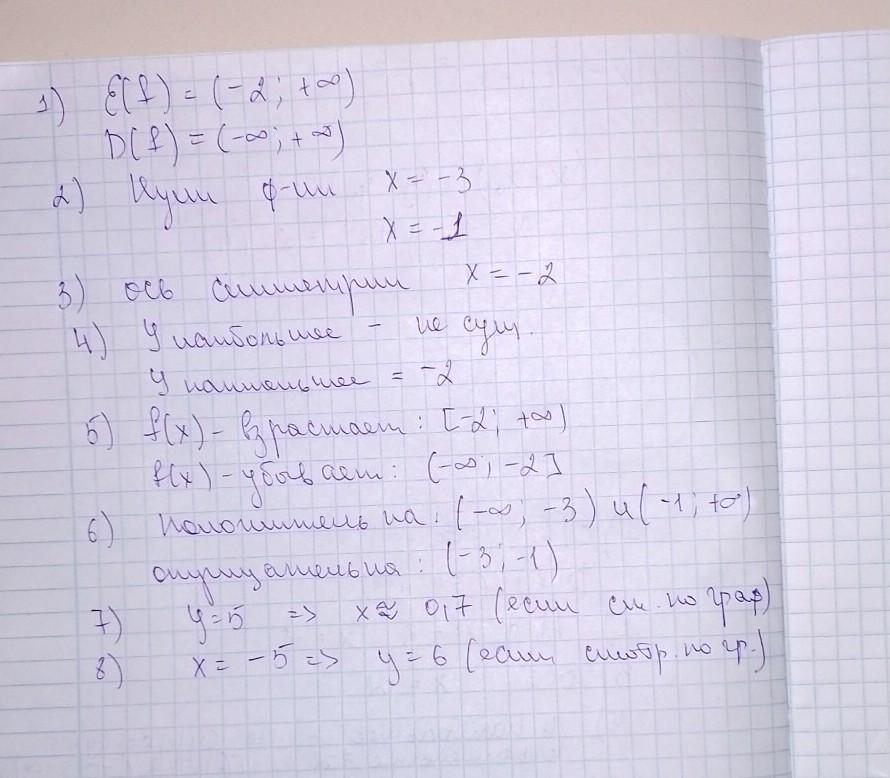 1) E(f) = (-2; +∞)
D(f) = (-∞; +∞)
2) Нули ф-ии x = -3
x = -1
3) ось симметрии x = -2
4) У наибольшее - не сущ.
У наименьшее = -2
5) f(x) - возрастает: [-2; +∞)
f(x) - убывает: (-∞; -2]
6) положительна: (-∞; -3) и (-1; +∞)
отрицательна: (-3; -1)
7) y=5 => x≈ 0,7 (если см. по граф)
8) x= -5 => y = 6 (если смотр. по гр.)